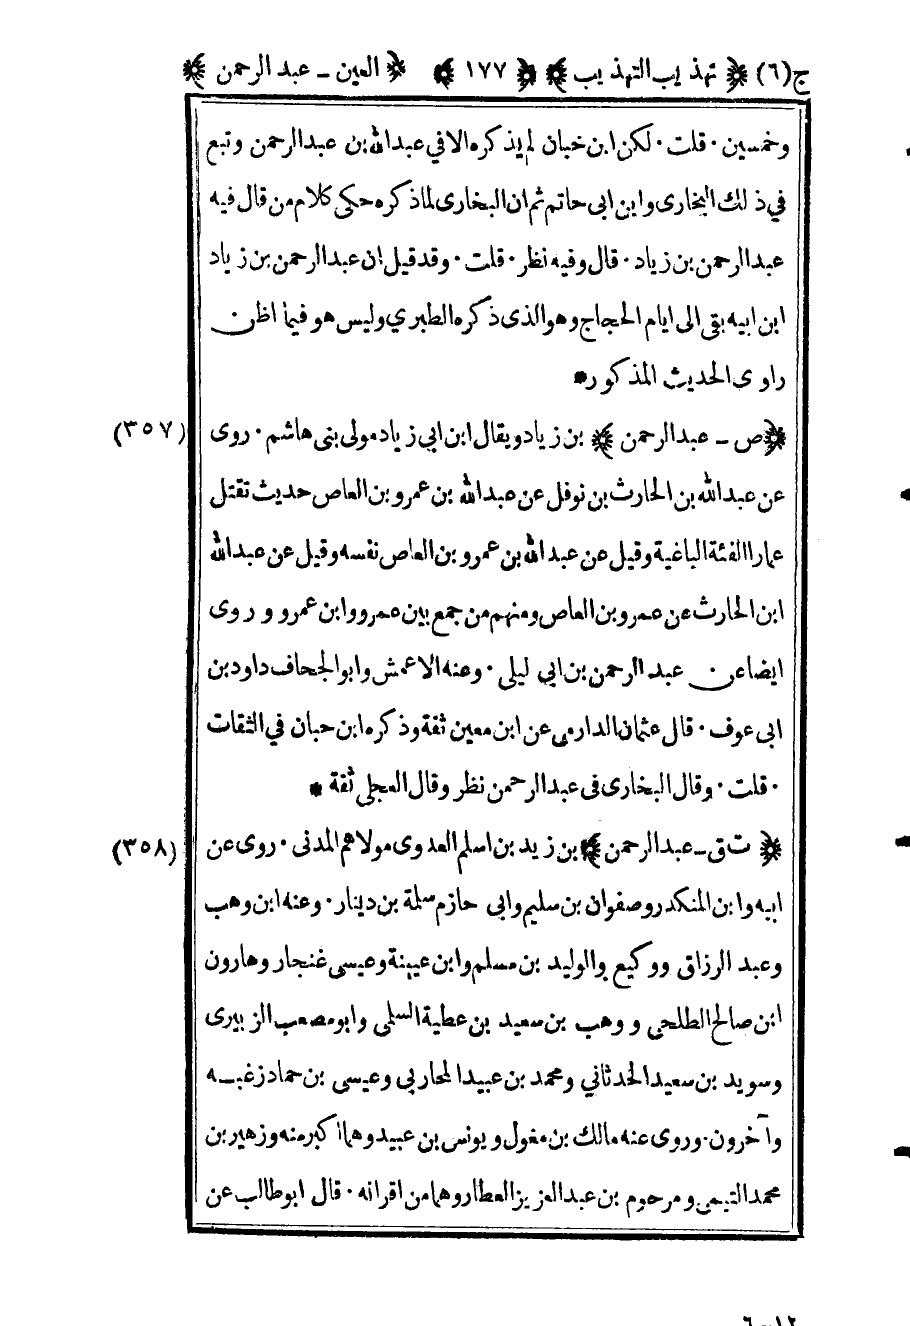 ج(٦) ﴿ تهذيب التهذيب ﴾ ﴿ ١٧٧ ﴾ ﴿ العين ـ عبد الرحمن ﴾
وخمسين ۰ قلت ۰ لكن ابن حبان لم يذكره الا في عبد الله بن عبد الرحمن وتبع
في ذلك البخارى وابن ابى حاتم ثم ان البخارى لما ذكره حكى كلام من قال فيه
عبد الرحمن بن زياد ۰ قال وفيه نظر ۰ قلت ۰ وقد قيل ان عبد الرحمن بن زياد
ابن ابيه بقى الى ايام الحجاج وهو الذى ذكره الطبري وليس هو فيما اظن
راوى الحديث المذكور *
﴿ ص ـ عبد الرحمن ﴾ بن زياد ويقال ابن ابي زياد مولى بنى هاشم ۰ روى (٣٥٧)
عن عبد الله بن الحارث بن نوفل عن عبد الله بن عمرو بن العاص حديث تقتل
عمارا الفئة الباغية وقيل عن عبد الله بن عمرو بن العاص نفسه وقيل عن عبد الله
ابن الحارث عن عمرو بن العاص ومنهم من جمع بين عمرو وابن عمرو وروى
ايضا عن عبد الرحمن بن ابي ليلى ۰ وعنه الاعمش وابو الجحاف داود بن
ابى عوف ۰ قال عثمان الدارمى عن ابن معين ثقة وذكره ابن حبان في الثقات
۰ قلت ۰ وقال البخارى فى عبد الرحمن نظر وقال العجلى ثقة *
﴿ ت ق ـ عبد الرحمن ﴾ بن زيد بن اسلم العدوى مولاهم المدنى ۰ روى عن (٣٥٨)
ابيه وابن المنكدر وصفوان بن سليم وابى حازم سلمة بن دينار ۰ وعنه ابن وهب
وعبد الرزاق ووكيع والوليد بن مسلم وابن عيينة وعيسى غنجار وهارون
ابن صالح الطلحى ووهب بن سعيد بن عطية السلمى وابو مصعب الزبيرى
وسويد بن سعيد الحدثاني ومحمد بن عبيد المحاربي وعيسى بن حماد زغبـه
وآخرون ۰ وروى عنه مالك بن مغول ويونس بن عبيد وهما اكبر منه وزهير بن
محمد التيمى ومرحوم بن عبد العزيز العطار وهما من اقرانه ۰ قال ابو طالب عن